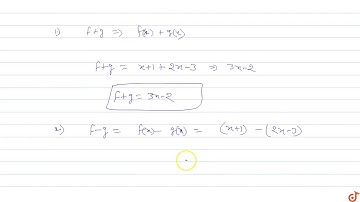 1) f+g ⇒ f(x) + g(x)
f+g = x+1+2x-3 ⇒ 3x-2
f+g = 3x-2
2) f-g = f(x) - g(x) = (x+1) - (2x-3)
=